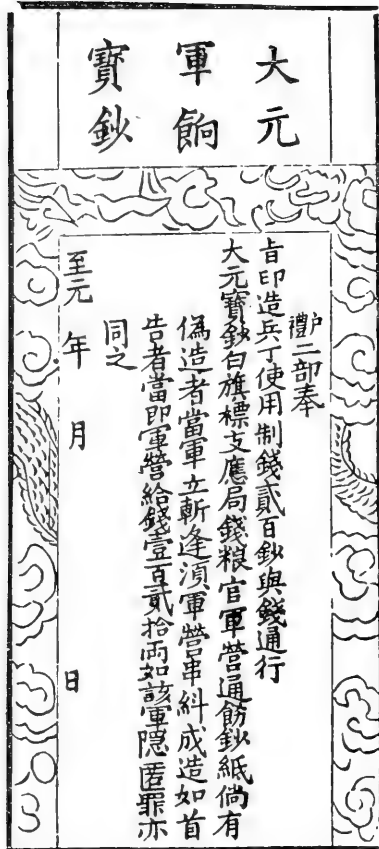 大元
軍餉
寶鈔
戶禮二部奉
旨印造兵丁使用制錢貳百鈔與錢通行
大元寶鈔白旗標支應局錢粮官軍營通飭鈔紙倘有
偽造者當軍立斬逢湏軍營串紏成造如首
告者當即軍營給錢壹百貳拾両如該軍隐匿罪亦
同之
至元 年 月 日